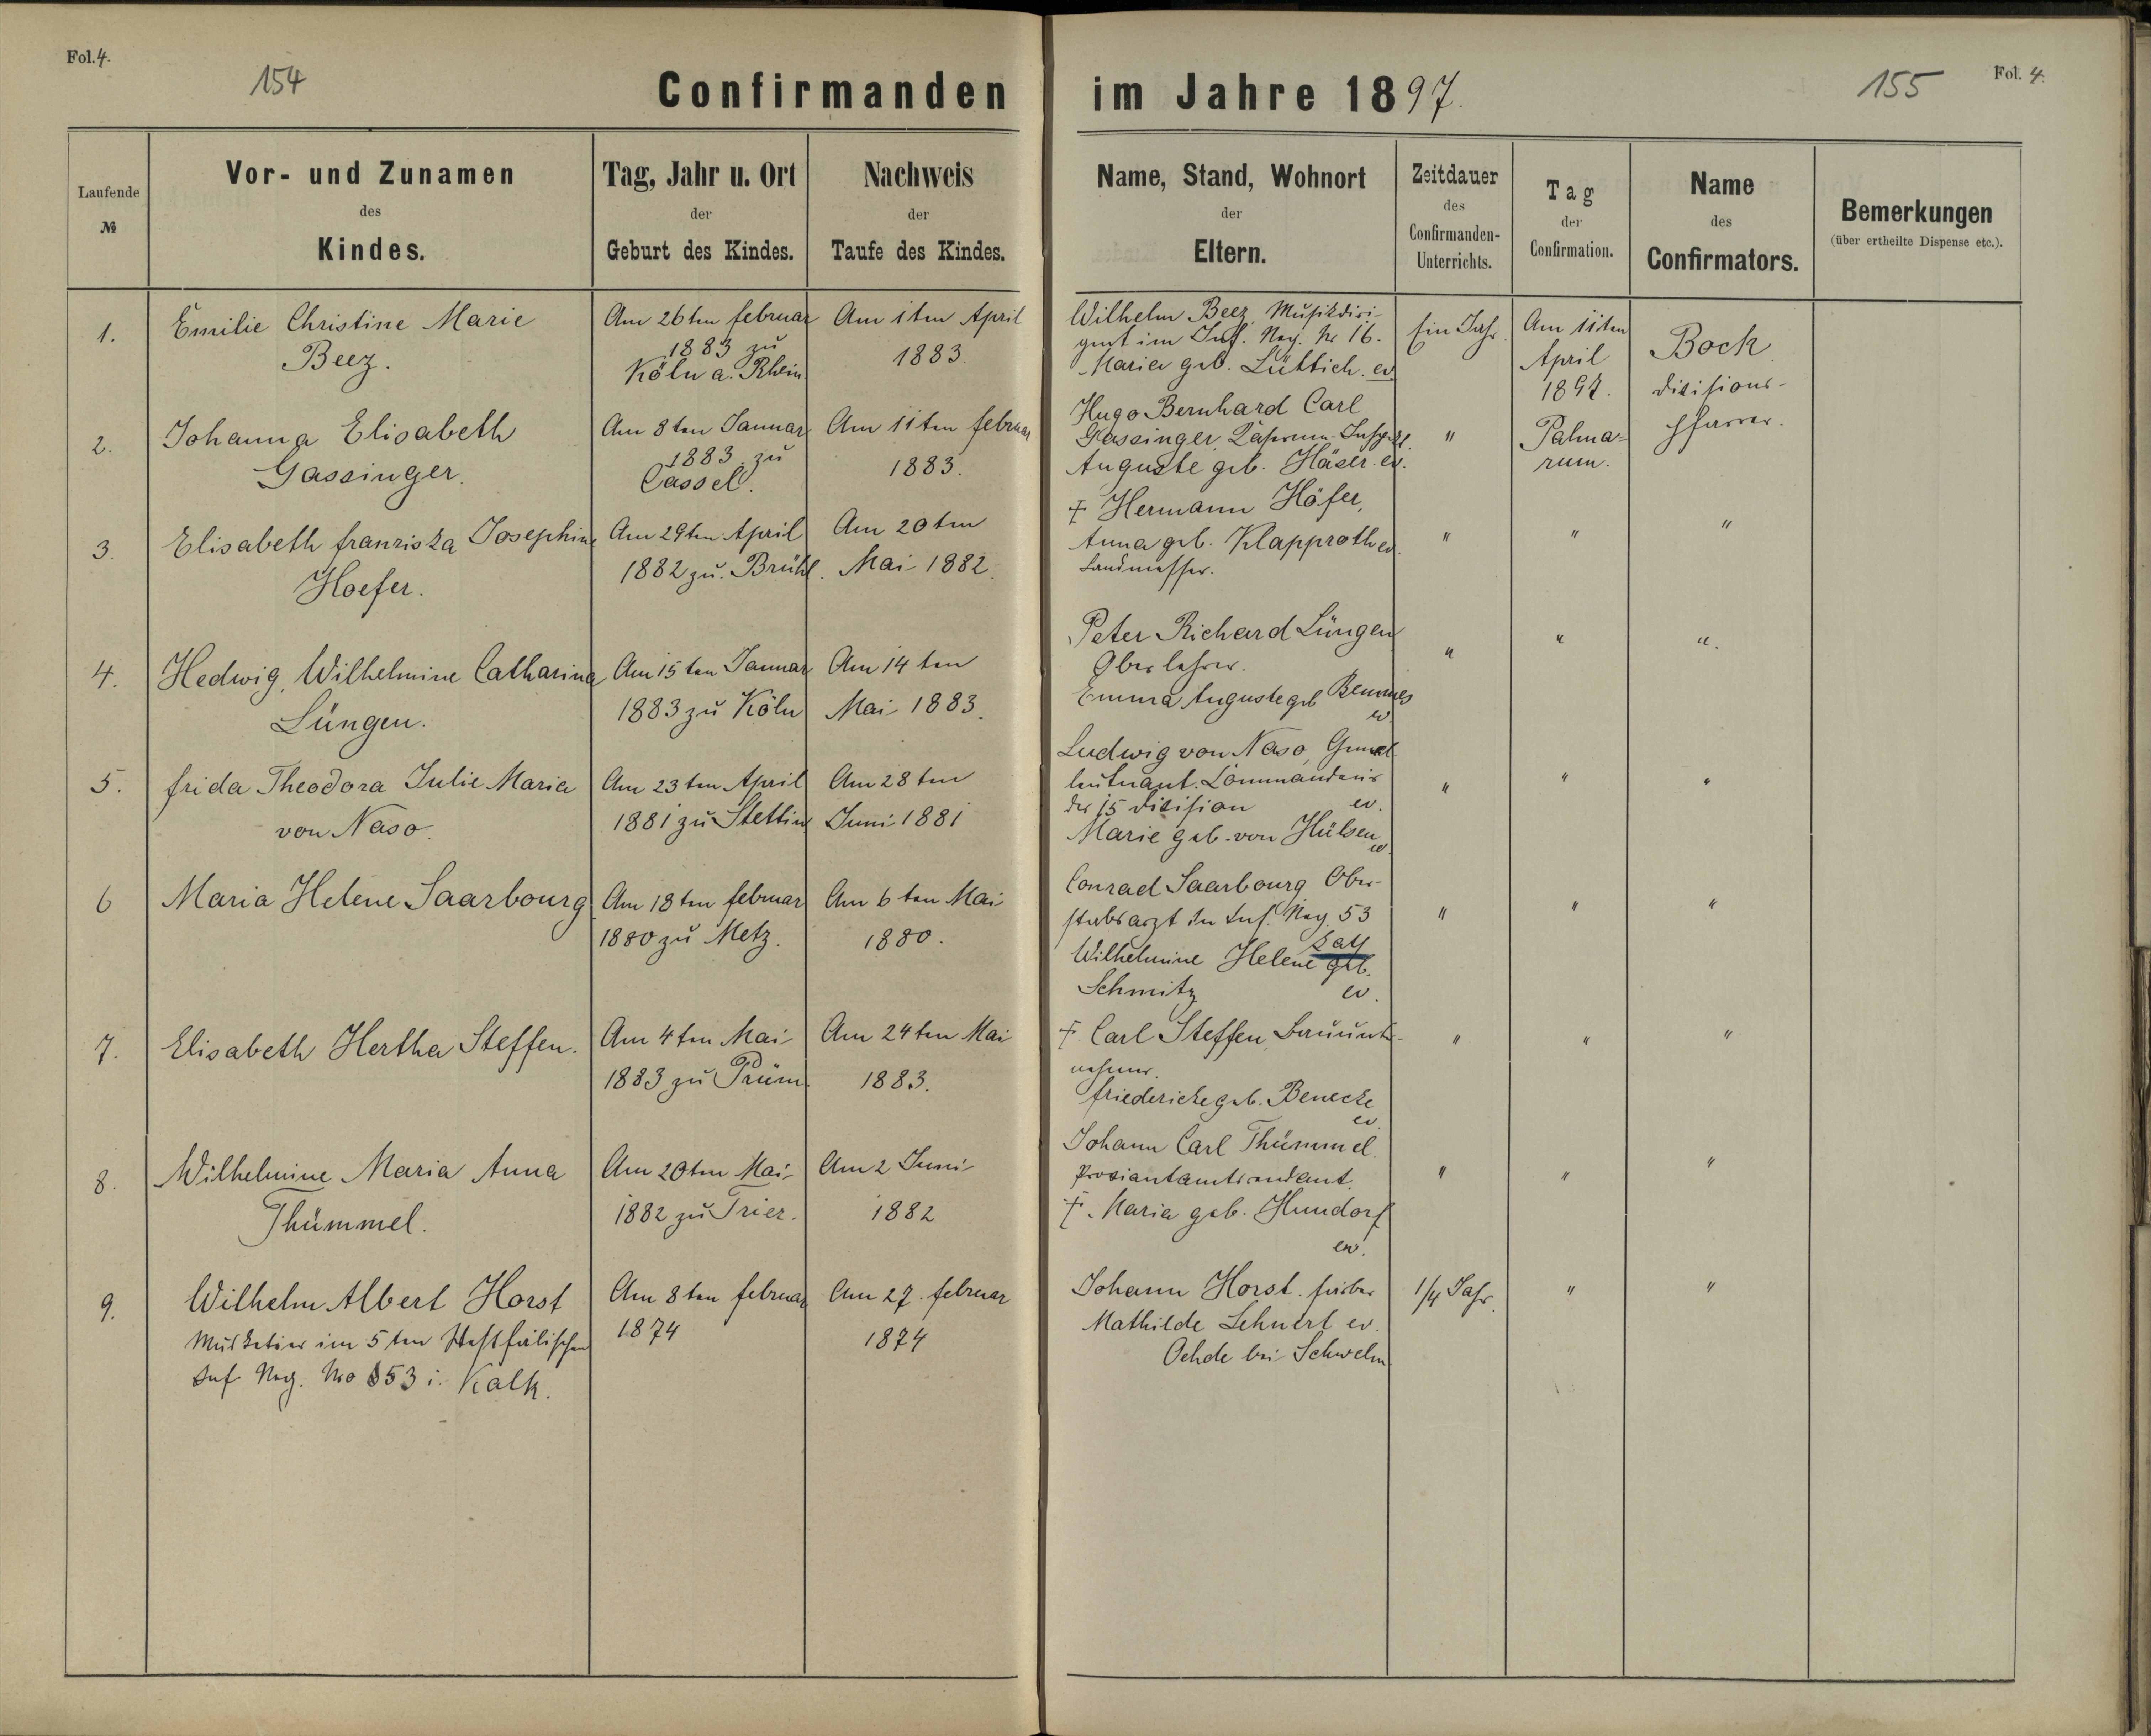 Fol. 4.
154
Confirmanden im Jahre 1897.
155
Fol. 4.
Laufende
№
Vor- und Zunamen
des
Kindes.
Tag, Jahr u. Ort
der
Geburt des Kindes.
Nachweis
der
Taufe des Kindes.
Name, Stand, Wohnort
der
Eltern.
Zeitdauer
des
Confirmanden-
Unterrichts.
Tag
der
Confirmation.
Name
des
Confirmators.
Bemerkungen
(über ertheilte Dispense etc.).
1.
Emilie Christine Marie
Beez.
Am 26ten februar
1883 zu
Köln a. Rhein.
Am 1ten April
1883.
Wilhelm Beez, Musikdiri-
gent im Inf. Reg. Nr 16.
Maria geb. Lüttich. ev
Ein Jahr
Am 11ten
April
1897.
Palma-
rum.
Bock
Divisions-
pfarrer.
2.
Johanna Elisabeth
Gassinger.
Am 8ten Januar
1883 zu
Cassel.
Am 11ten februar
1883.
Hugo Bernhard Carl
Gassinger
Auguste geb. Häser. ev.
"
3.
Elisabeth franziska Josephine
Hoefer.
Am 29ten April
1882 zu Brühl.
Am 20ten
Mai 1882.
† Hermann Höfer,
Anna geb. Klapproth ev.
Landmesser.
"
"
"
4.
Hedwig, Wilhelmine Catharina
Lüngen.
Am 15ten Januar
1883 zu Köln
Am 14ten
Mai 1883.
Peter Richard Lüngen
Oberlehrer.
Emma Auguste geb
ev.
"
"
".
5.
frida Theodora Julie Maria
von Naso.
Am 23ten April
1881 zu Stettin
Am 28ten
Juni 1881
Ludwig von Naso, General
leutnant. Commandeur
der 15 Division ev.
Marie geb. von Hülsen
ev.
"
"
"
6
Maria Helene Saarbourg
Am 18ten februar
1880 zu Metz.
Am 6ten Mai
1880.
Conrad Saarbourg Ober-
stabsarzt im Inf. Reg. 53
kath
Wilhelmine Helene geb.
Schmitz ev.
"
"
"
7.
Elisabeth Hertha Steffen.
Am 4ten Mai
1883 zu Prüm.
Am 24ten Mai
1883.
† Carl Steffen, Baunter-
nehmer.
friedericke geb. Benecke
ev.
"
"
"
8.
Wilhelmine Maria Anna
Thümmel.
Am 20ten Mai
1882 zu Trier.
Am 2 Juni
1882
Johann Carl Thümmel.
Proviantamtsrendant.
†. Maria geb. Hundorf
ev.
"
"
"
9.
Wilhelm Albert Horst
Musketier im 5ten Westfälischen
Inf. Reg. No 53 i. Kalk.
Am 8ten februar
1874
Am 27. februar
1874
Johann Horst. färber
Mathilde Lehnert ev.
Oehde bei Schwelm
1/4 Jahr.
"
"